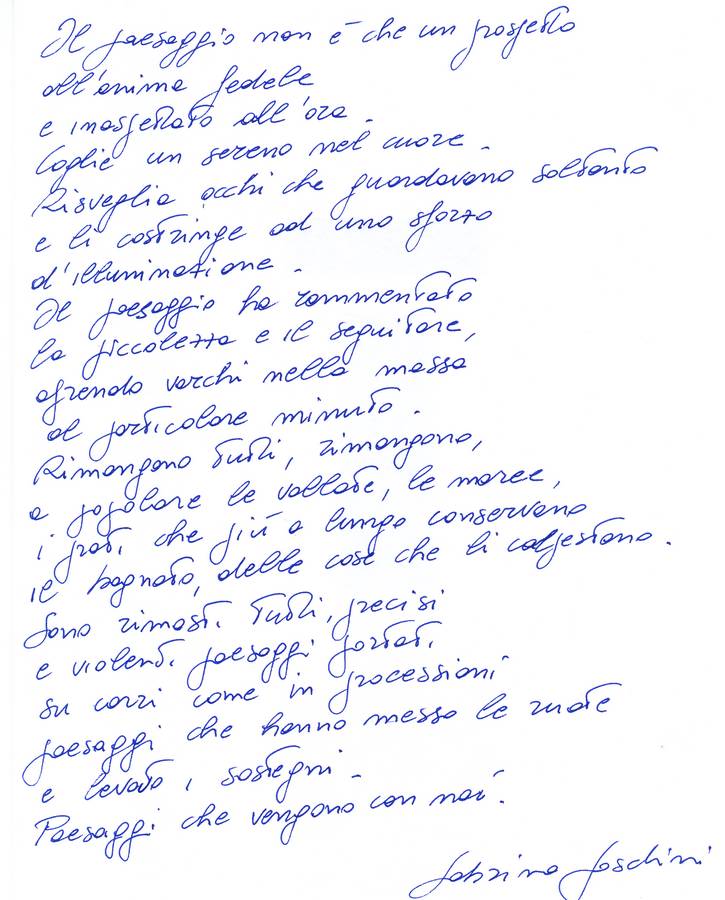 Il paesaggio non è che un prospetto
all'anima fedele
e inaspettato all'ora.
Coglie un sereno nel cuore.
Risveglia occhi che guardavano soltanto
e li costringe ad uno sforzo
d'illuminazione.
Il paesaggio ha rammentato
la piccolezza e il seguitare,
aprendo varchi nella massa
al particolare minuto.
Rimangono tutti, rimangono,
a popolare le vallate, le maree,
i prati che più a lungo conservano
il bagnato, delle cose che li calpestano.
Sono rimasti tutti, precisi
e violenti paesaggi portati
su carri come in processioni
paesaggi che hanno messo le ruote
e levato i sostegni.
Paesaggi che vengono con noi.
Sabrina Foschini